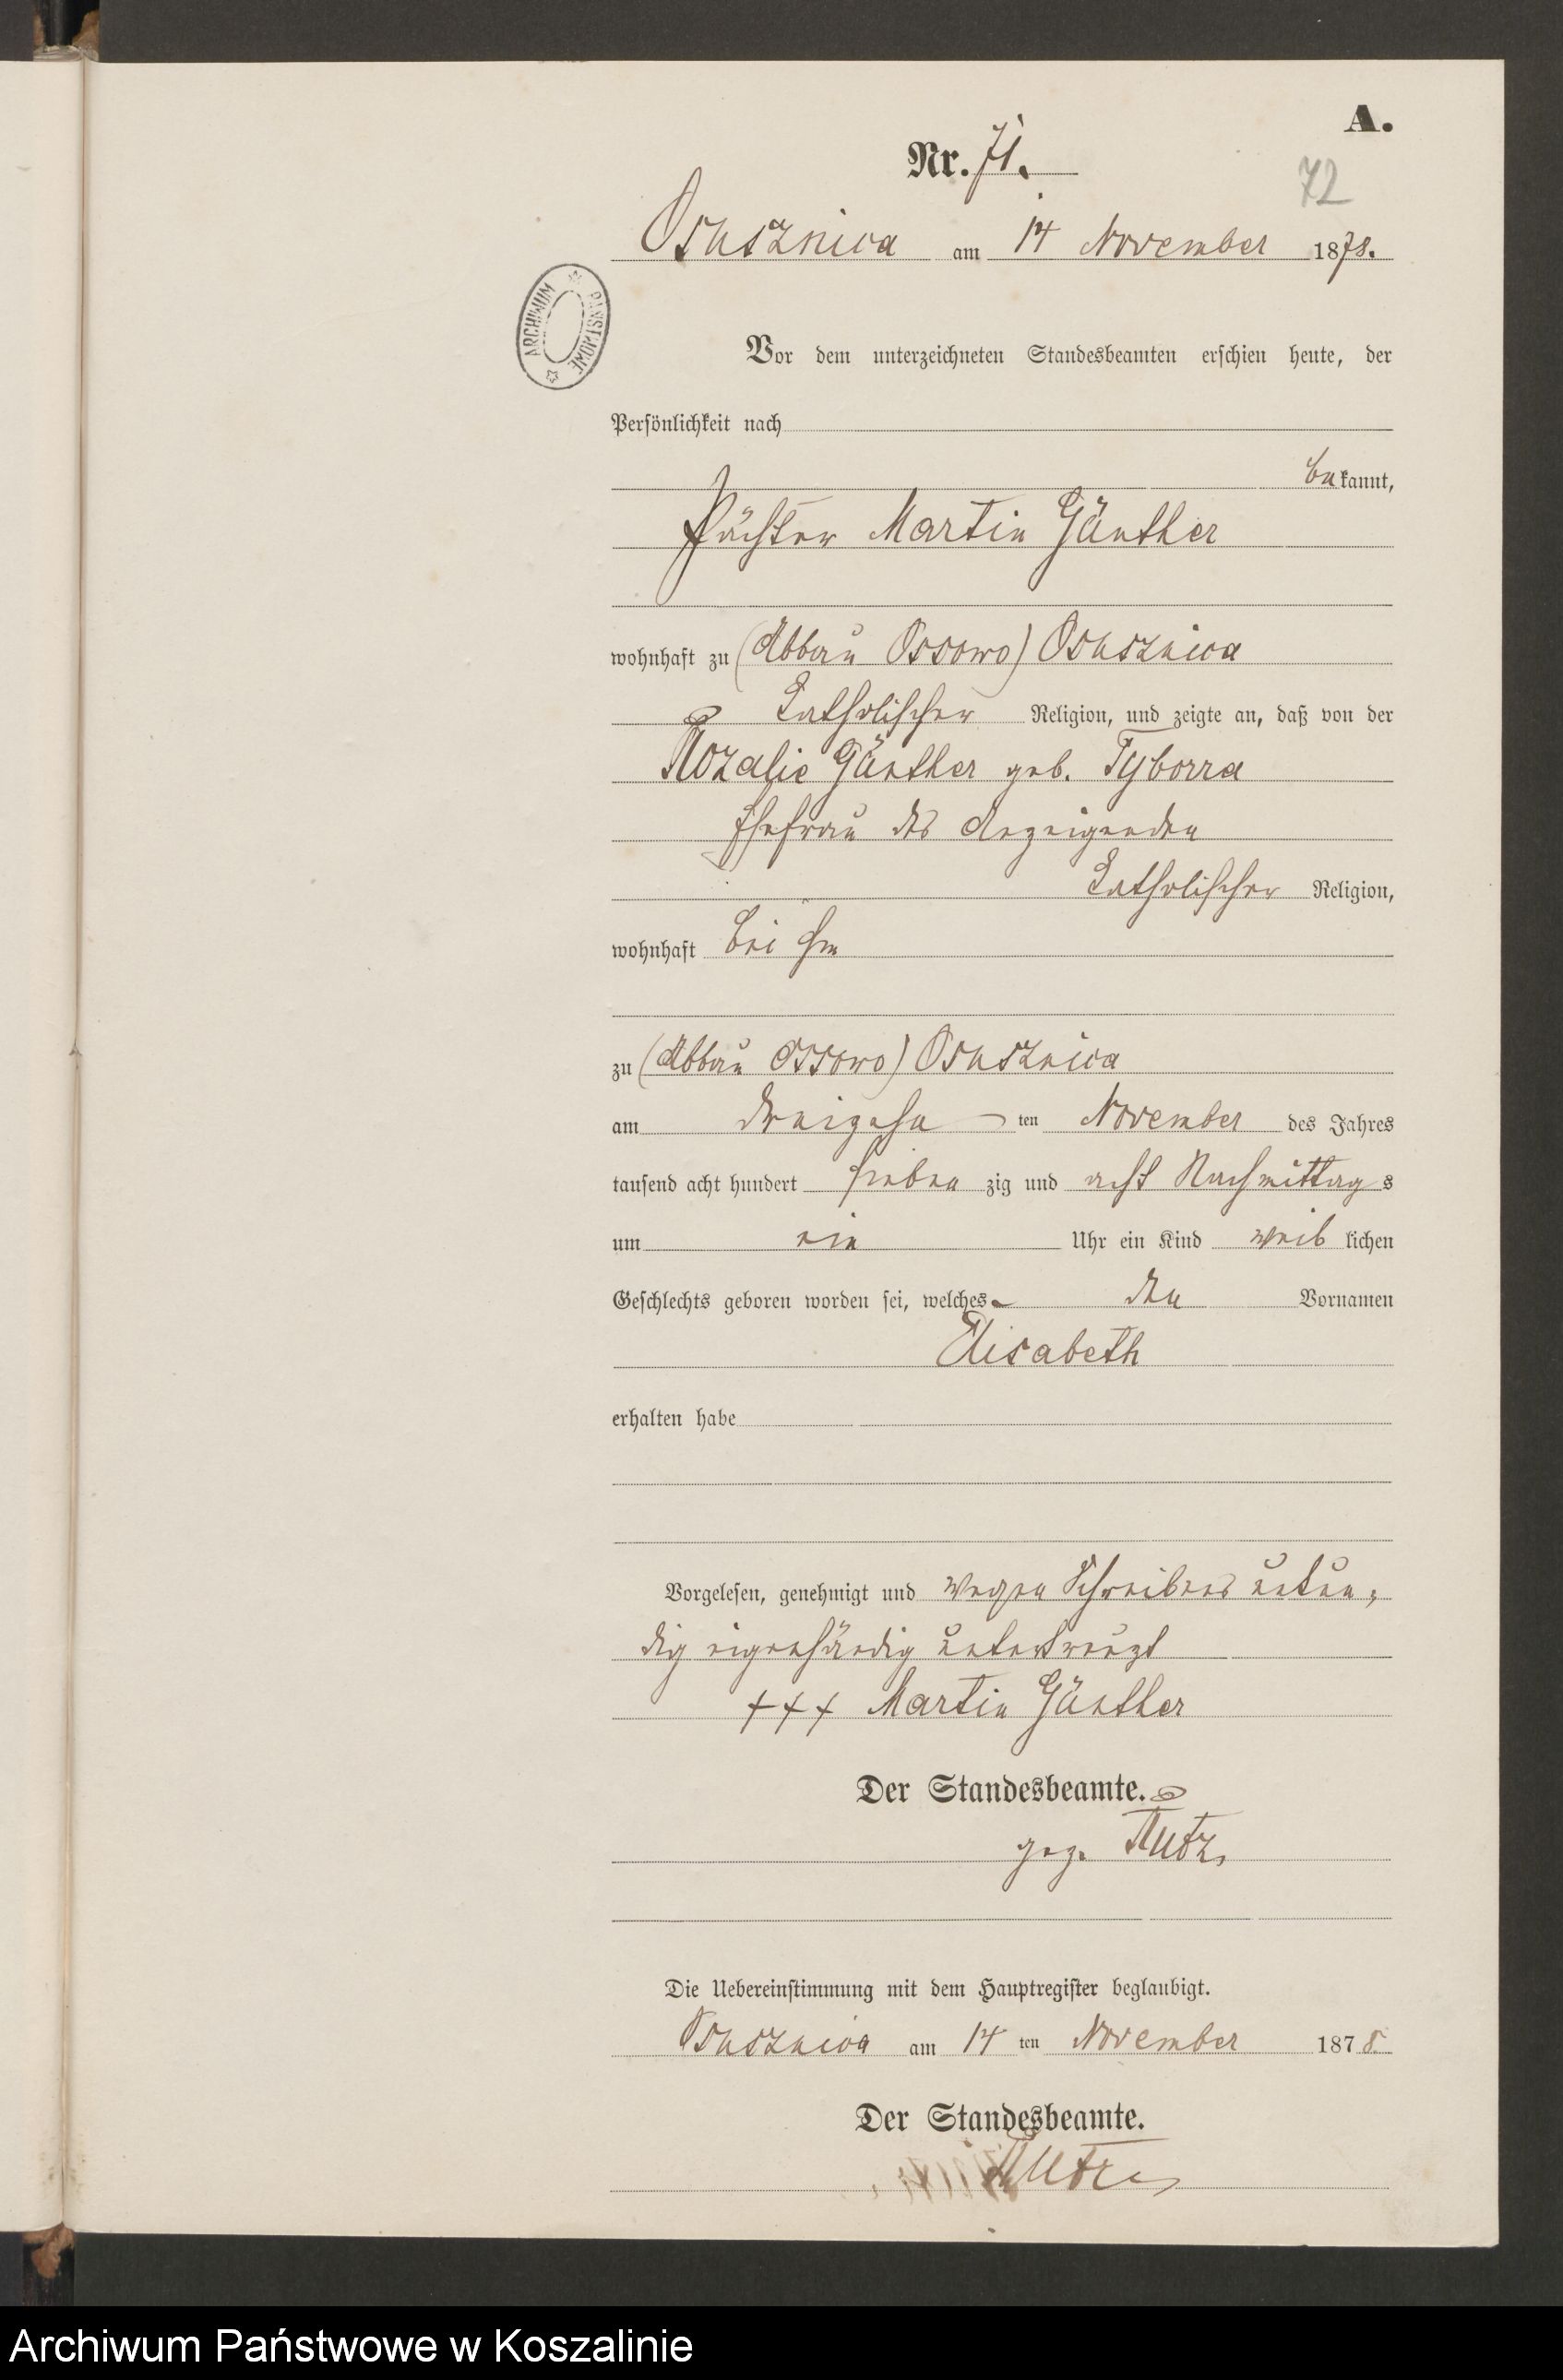 A.
Nr. 71.
72
Osusznica am 14 November 1878.
ARCHIWUM PAŃSTWOWE
Vor dem unterzeichneten Standesbeamten erschien heute, der
Persönlichkeit nach
bekannt,
Pächter Martin Günther
wohnhaft zu (Abbau Ossowo) Osusznica
katholischer Religion, und zeigte an, daß von der
Rozalie Günther geb. Tyborra
Ehefrau des Anzeigenden
katholischer Religion,
wohnhaft bei ihm
zu (Abbau Ossowo) Osusznica
am dreizehn ten November des Jahres
tausend acht hundert sieben zig und acht Nachmittag s
um ein Uhr ein Kind weib lichen
Geschlechts geboren worden sei, welches den Vornamen
Elisabeth
erhalten habe
Vorgelesen, genehmigt und wegen Schreibens unkun-
dig eigenhändig unterkreuzt
+++ Martin Günther
Der Standesbeamte.
gez. Rutz
Die Uebereinstimmung mit dem Hauptregister beglaubigt.
Osusznica am 14 ten November 1878.
Der Standesbeamte.
Rutz
Archiwum Państwowe w Koszalinie